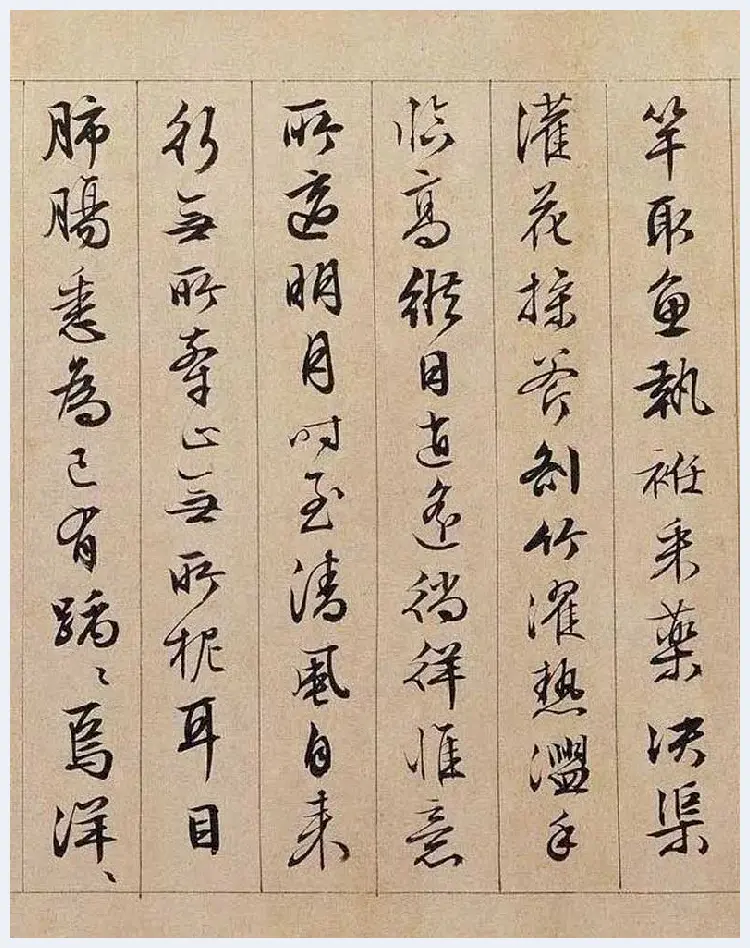 竿取魚執衽采藥決渠
灌花操斧剖竹濯熱盥手
臨高縱目逍遙徜徉惟意
所適明月時至清風自来
行無所牽止無所柅耳目
肺腸悉為己有踽〻焉洋〻